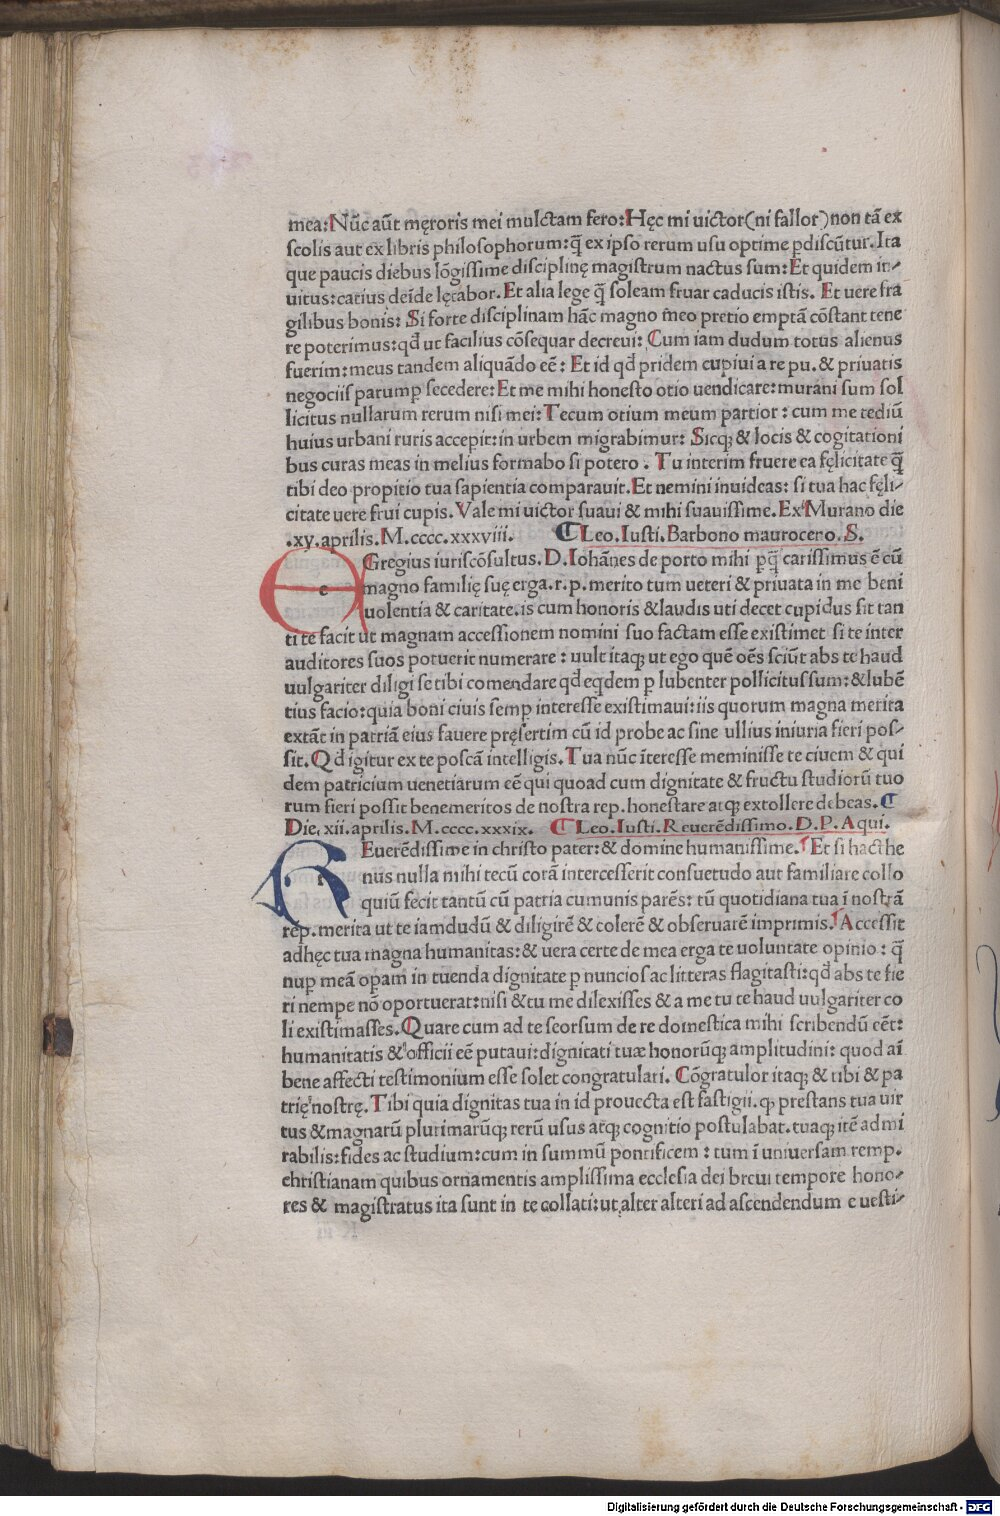 mea:Nũc aũt męroris mei mulctam fero:Hęc mi uictor(ni fallor)non tã ex
scolis aut ex libris philosophorum:q̃ ex ipso rerum usu optime ꝑdiscũtur.Ita
que paucis diebus lõgissime disciplinę magistrum nactus sum:Et quidem in⸗
uitus:catius deĩde lętabor.Et alia lege q̃ soleam fruar caducis istis. Et uere fra
gilibus bonis: Si forte disciplinam hãc magno meo pretio emptã cõstant tene
re poterimus:qđ ut facilius cõsequar decreui: Cum iam dudum totus alienus
fuerim:meus tandem aliquãdo eẽ: Et id qđ pridem cupiui a re pu.& priuatis
negociis parumꝑ secedere:Et me mihi honesto otio uendicare:murani sum sol
licitus nullarum rerum nisi mei:Tecum otium meum partior: cum me tediũ
huius urbani ruris acceperit:in urbem migrabimur: Sicqꝫ & locis & cogitationi
bus curas meas in melius formabo si potero. Tu interim fruere ea fęlicitate q̃
tibi deo propitio tua sapientia comparauit.Et nemini inuideas: si tua hac fęli⸗
citate uere frui cupis. Vale mi uictor suaui & mihi suauissime. Ex Murano die
.xy.aprilis.M.cccc.xxxviii. ⸿Leo.Iusti.Barbono maurocero.S.
EGregius iuriscõsultus.D.Iohãnes de porto mihi ꝑq̃ carissimus ẽ cũ
magno familię suę erga.r.p.merito tum ueteri & priuata in me beni
uolentia & caritate.is cum honoris & laudis uti decet cupidus sit tan
ti te facit ut magnam accessionem nomini suo factam esse existimet si te inter
auditores suos potuerit numerare: uult itaqꝫ ut ego quẽ oẽs sciũt abs te haud
uulgariter diligi se tibi comendare qđ eqdem ꝑ lubenter pollicitus sum:&lubẽ
tius facio:quia boni ciuis semꝑ interesse existimaui:iis quorum magna merita
extãt in patriã eius fauere pręsertim cũ id probe ac sine ullius iniuria fieri pos⸗
sit.Qđ igitur ex te poscã intelligis.Tua nũc ĩteresse meminisse te ciuem & qui
dem patricium uenetiarum eẽ qui quoad cum dignitate & fructu studiorũ tuo
rum fieri possit benemeritos de nostra rep.honestare atqꝫ extollere debeas.⸿
Die.xii.aprilis.M.cccc.xxxix. ⸿Leo.Iusti.Reuerẽdissimo.D.P.Aqui.
REuerẽdissime in christo pater:& domine humanissime. Et si hacthe
nus nulla mihi tecũ corã intercesserit consuetudo aut familiare collo
quiũ fecit tantũ cũ patria cumunis parẽs: tũ quotidiana tua ĩ nostrã
rep.merita ut te iamdudũ & diligirẽ & colerẽ & obseruarẽ imprimis. Accessit
adhęc tua magna humanitas:& uera certe de mea erga te uoluntate opinio: q̃
nuꝑ meã opam in tuenda dignitate ꝑ nuncios ac litteras flagitasti:qđ abs te fie
ri nempe nõ oportuerat:nisi & tu me dilexisses & a me tu te haud uulgariter co
li existimasses.Quare cum ad te seorsum de re domestica mihi scribendũ eẽt:
humanitatis & officii eẽ putaui:dignitati tuæ honorũqꝫ amplitudini: quod aĩ
bene affecti testimonium esse solet congratulari. Cõgratulor itaqꝫ & tibi & pa
trię nostrę.Tibi quia dignitas tua in id prouecta est fastigii.qꝫ prestans tua uir
tus & magnarũ plurimarũqꝫ rerũ usus atqꝫ cognitio postulabat.tuaqꝫ itẽ admi
rabilis:fides ac studium:cum in summũ pontificem: tum ĩ uniuersam remp.
christianam quibus ornamentis amplissima ecclesia dei breui tempore hono⸗
res & magistratus ita sunt in te collati:ut alter alteri ad ascendendum e uesti⸗
Digitalisierung gefördert durch die Deutsche Forschungsgemeinschaft - DFG